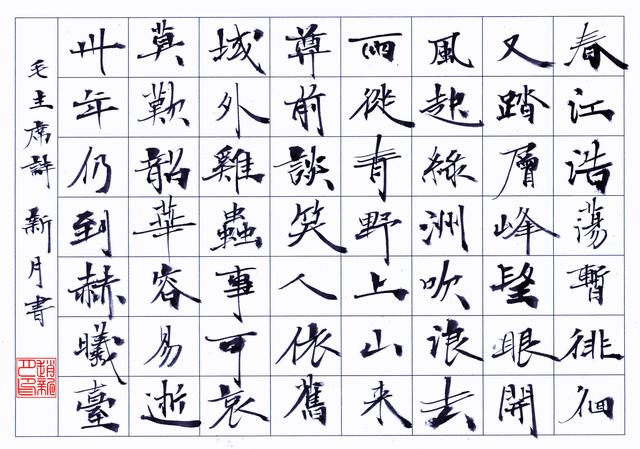 春江浩蕩暫徘徊
又踏層峰望眼開
風起綠洲吹浪去
雨從青野上山來
尊前談笑人依舊
域外雞蟲事可哀
莫歎韶華容易逝
卅年仍到赫曦臺
毛主席詩 新月書